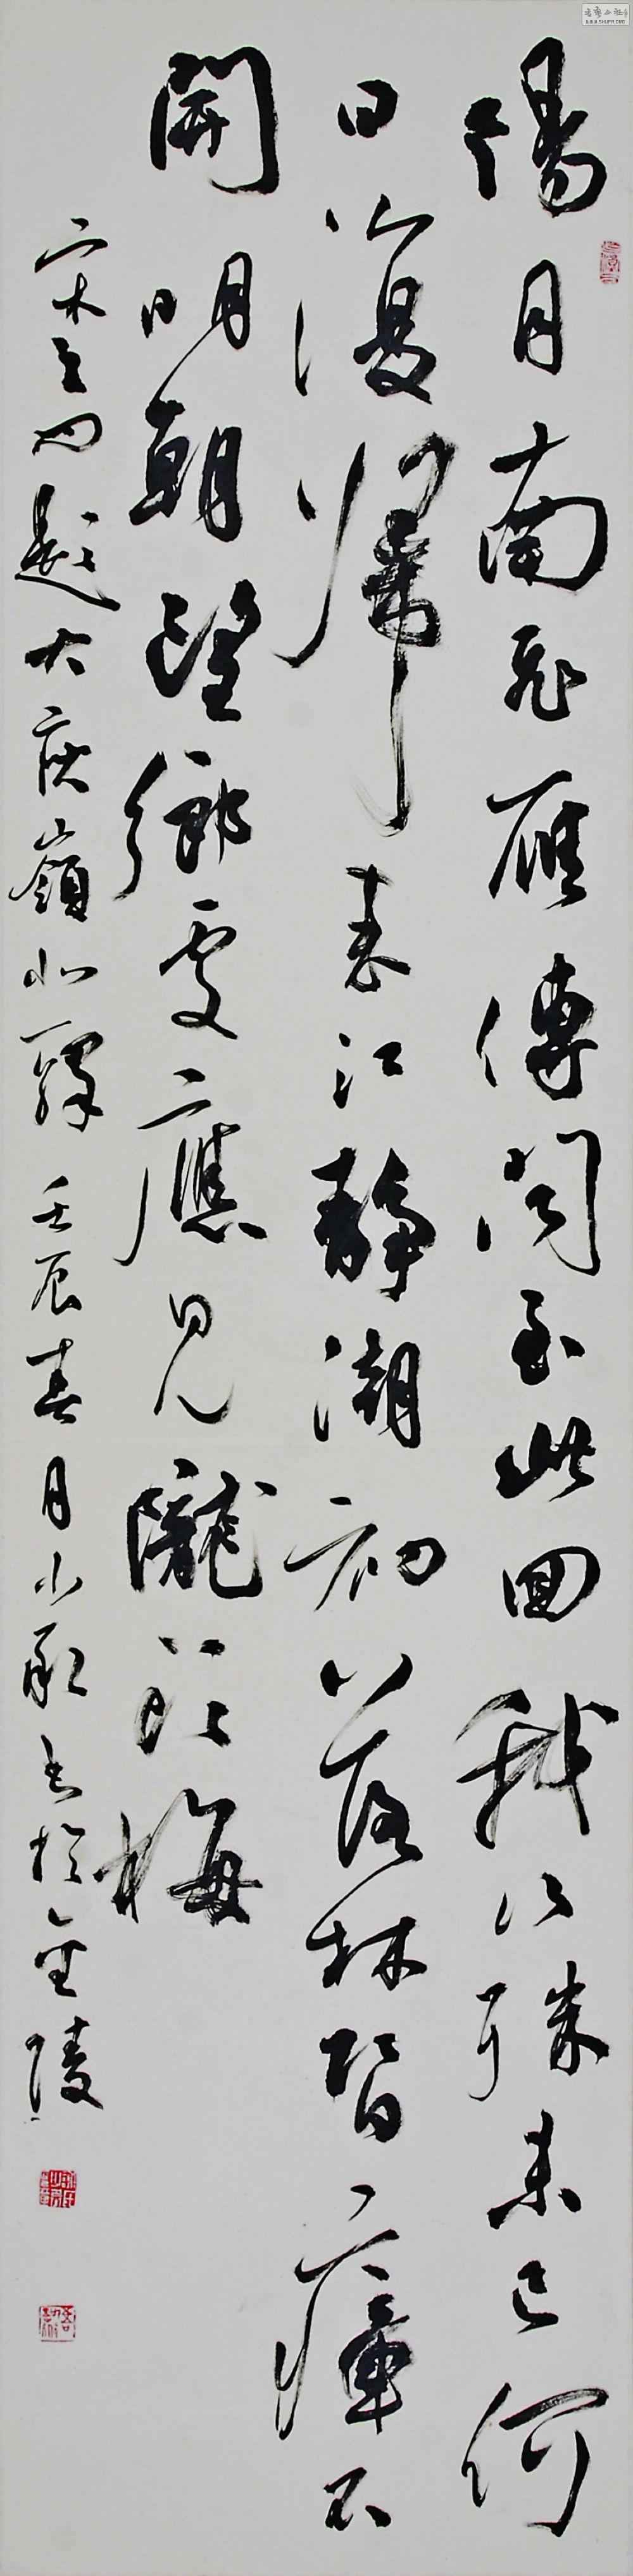 陽月南飛雁傳聞至此回我行殊未已何
日復歸來江靜潮初落林昏瘴不
開明朝望鄉處應見隴頭梅
宋之問題大庾嶺北驛 壬辰春月小彤書於金陵
WWW.SHUFA.ORG